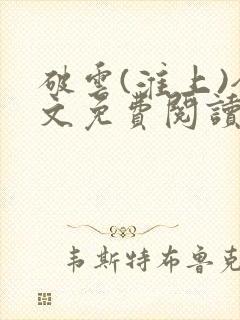 破雲(淮上)
文免費閱讀
韦斯特布鲁克